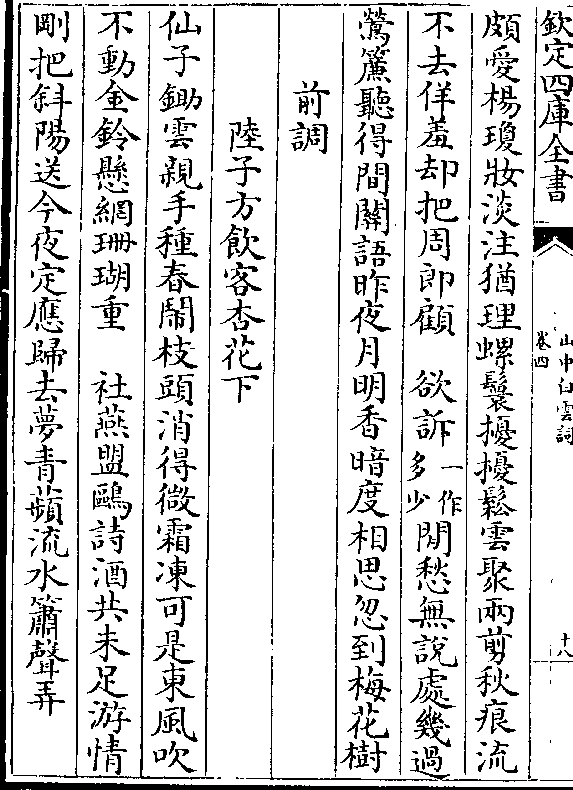 欽定四庫全書
山中白雲詞
卷四
十八
頗愛楊瓊妝淡注猶理螺鬟擾擾鬆雲聚兩剪秋痕流
不去佯羞却把周郎顧　欲訴一作多少閒愁無說處幾過
鶯簾聽得間關語昨夜月明香暗度相思忽到梅花樹
前調
陸子方飲客杏花下
仙子鋤雲親手種春鬧枝頭消得微霜凍可是東風吹
不動金鈴懸網珊瑚重　社燕盟鷗詩酒共未足游情
剛把斜陽送今夜定應歸去夢青蘋流水簫聲弄